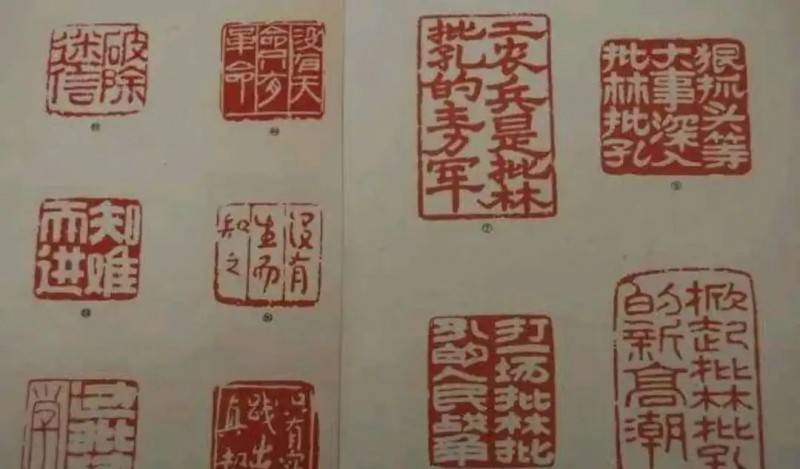 破除
迷信
没有天
命只有
革命
知难
而进
没有
生而
知之
学
只有实
践出
真知
工农兵是批林
批孔的主力军
⑦
狠抓头等
大事深入
批林批孔
⑤
打一场批林批
孔的人民战争
掀起批林批孔
的新高潮